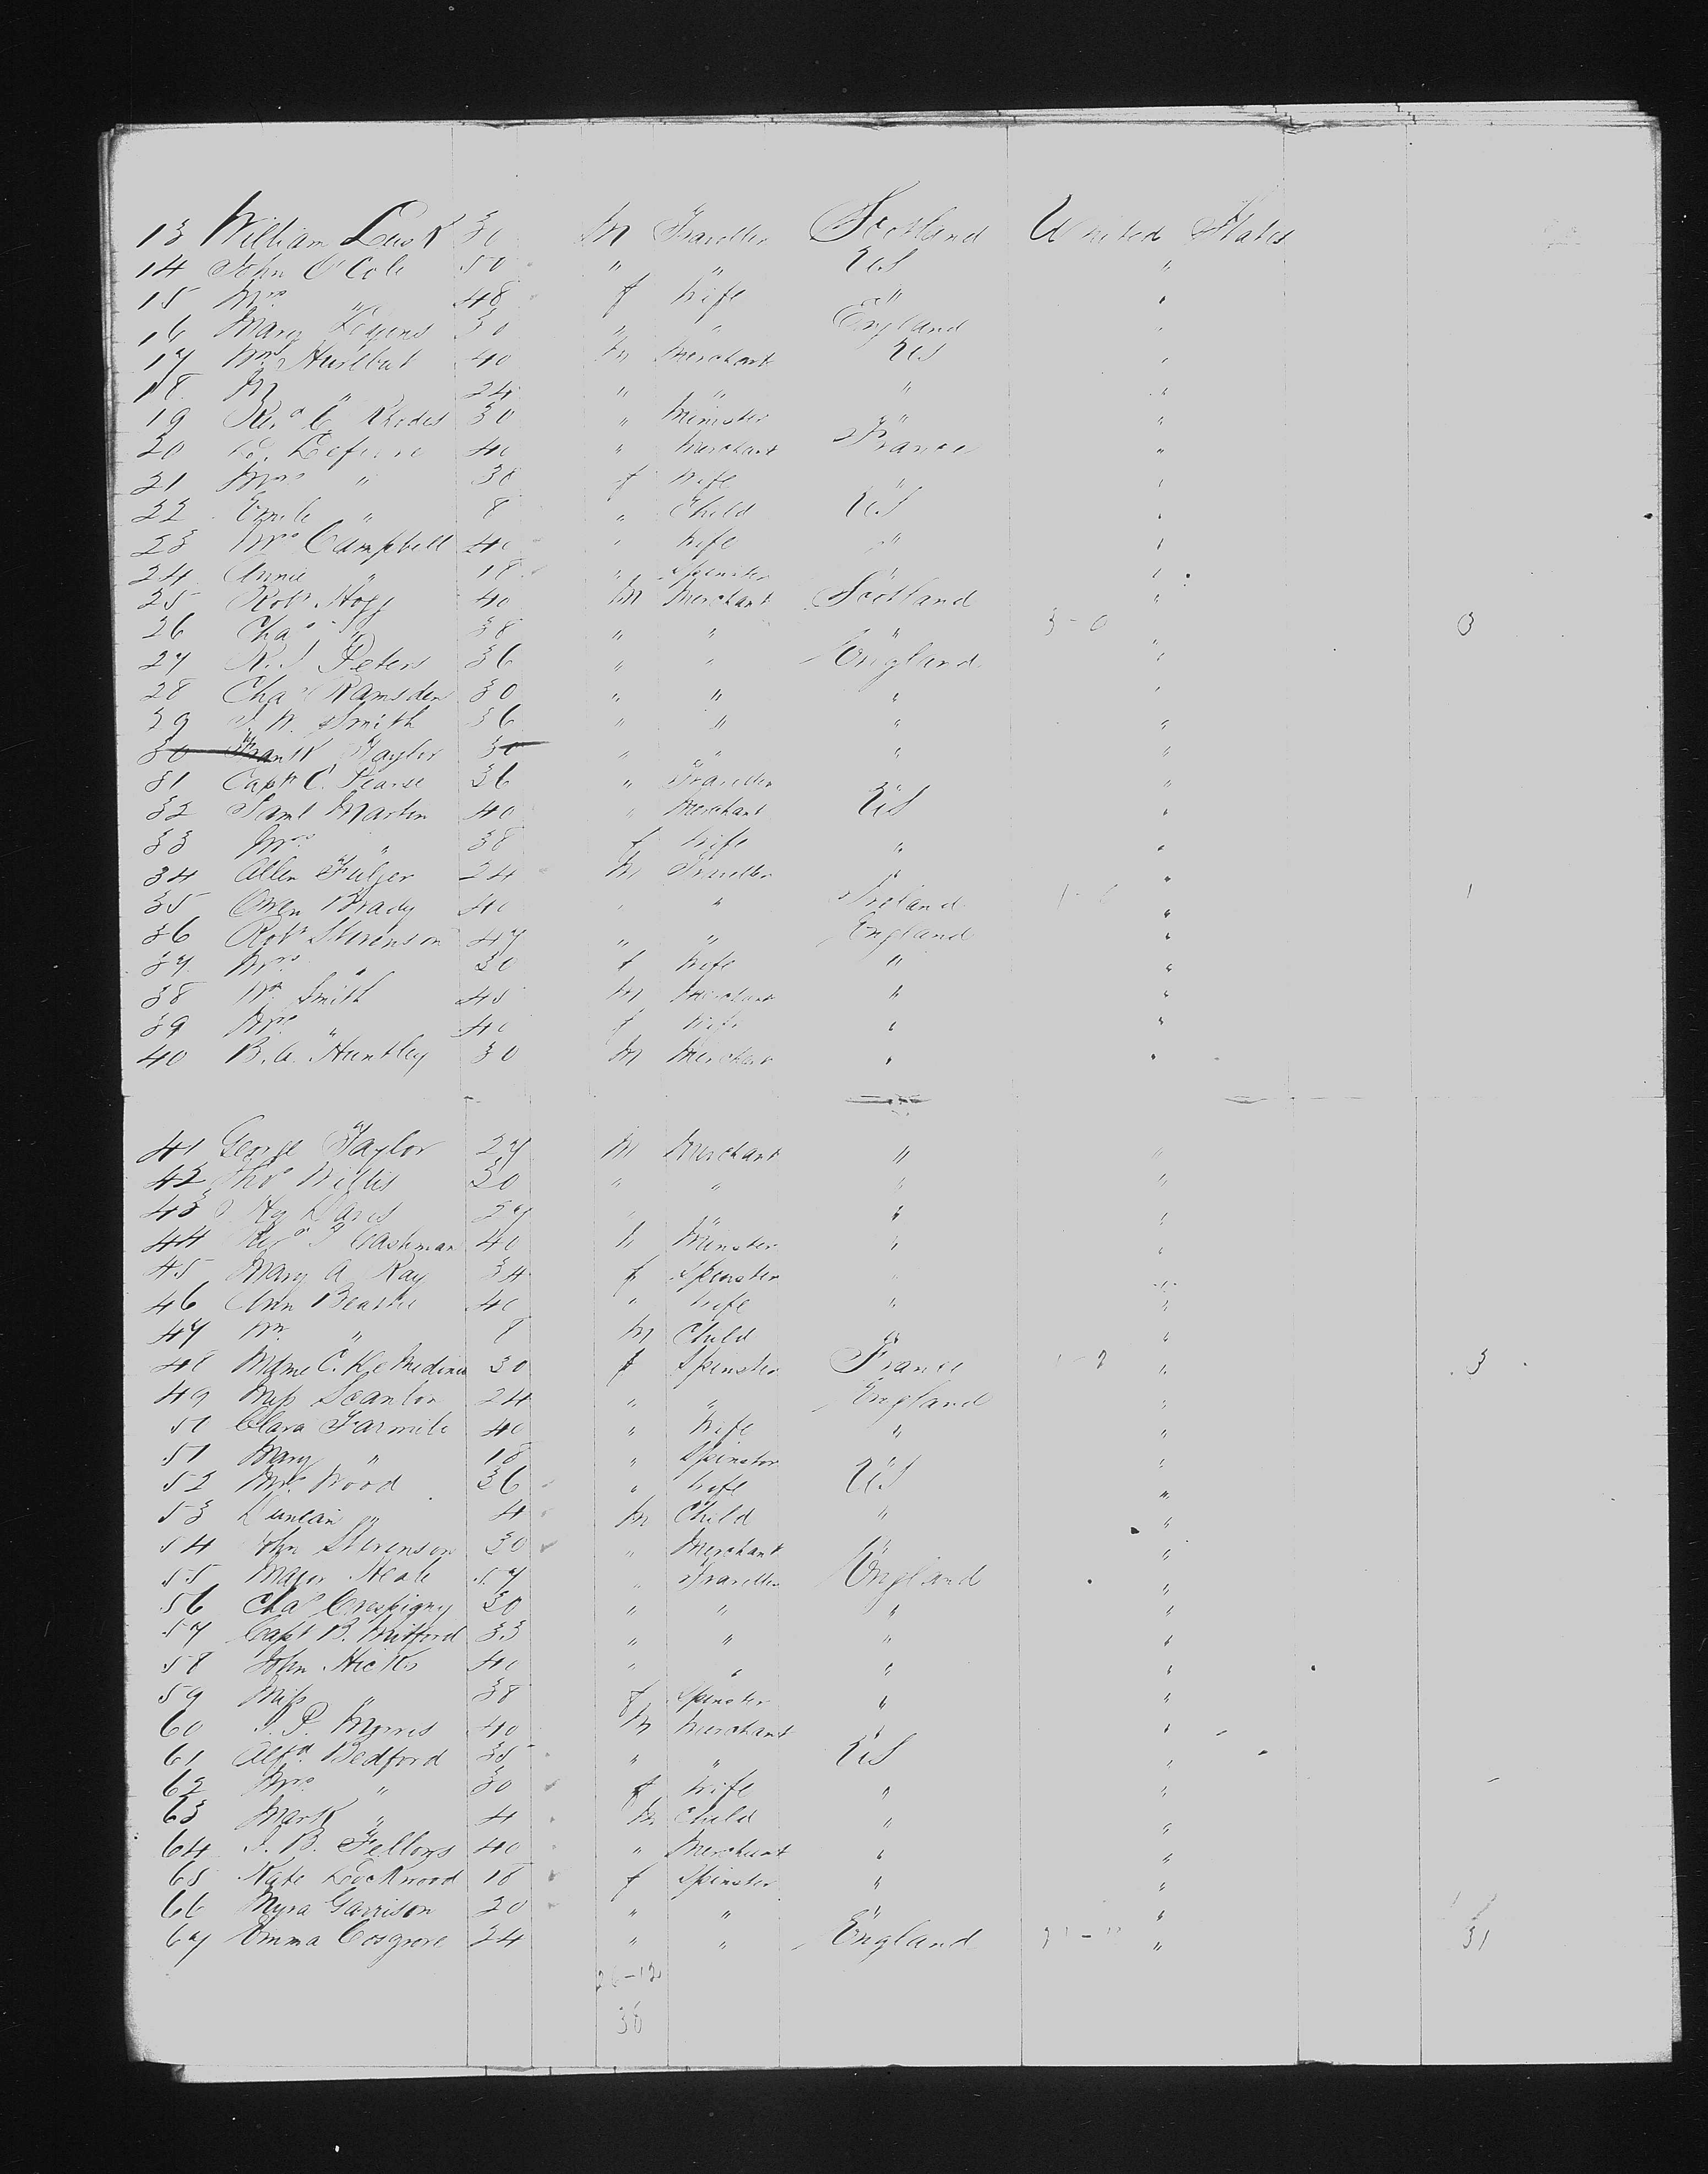 13 William Lusk 30 M Traveller Scotland United States
14 John O Cole 50 " " U.S "
15 Mrs " 48 f Wife " "
16 Mary 30 " " England "
17 Wm Hurlbut 40 M Merchant U.S "
18 M " 24 " " " "
19 Revd C Rhodes 30 " Minister " "
20 40 " Merchant France "
21 Mrs " 38 f Wife " "
22 Emile " 8 " Child U.S "
23 Mrs Campbell 40 " Wife " "
24 Annie " 18 " Spinster " "
25 Robt Hogg 40 M Merchant Scotland "
26 Chas " 38 " " " 3-0 " 3
27 R. S Peters 36 " " England "
28 Chas Ramsden 30 " " " "
29 J. W. Smith 36 " " " "
30 Frank Taylor 30 " " " "
31 Capt C. Pearse 36 " Traveller " "
32 Saml Martin 40 " Merchant U.S "
33 Mrs " 38 f Wife " "
34 Allen Fulger 24 M Traveller " "
35 Owen Brady 40 " " Ireland 1-0 " 1
36 Robt Stevenson 47 " " England "
37 Mrs " 30 f Wife " "
38 Wm Smith 45 M Merchant " "
39 Mrs " 40 f Wife " "
40 B. A. Huntley 30 M Merchant " "
41 George Taylor 27 M Merchant " "
42 Thos Willis 30 " " " "
43 Hy Davis 27 " " " "
44 Revd Cashman 40 M Minister " "
45 Mary A Ray 34 f Spinster " "
46 Ann Beattie 40 " Wife " "
47 Wm " 8 M Child " "
48 Mdme C. De Medina 30 f Spinster France " 3
49 Miss Scanlon 24 " " England "
50 Clara Farmile 40 " Wife " "
51 Mary " 18 " Spinster " "
52 Mrs Wood 36 " Wife U.S "
53 Duncan " 4 M Child " "
54 John Stevenson 30 " Merchant " "
55 Major Neale 57 " Traveller England "
56 Chas Crespigny 30 " " " "
57 Capt B. Mitford 33 " " " "
58 John Hicks 40 " " " "
59 Miss " 38 f Spinster " "
60 J. P. Morris 40 M Merchant " "
61 Alfd Bedford 35 " " U.S "
62 Mrs " 30 f Wife " "
63 Mark " 4 M Child " "
64 J. B. Fellows 40 " Merchant " "
65 Kate Lockwood 18 f Spinster " "
66 Myra Garrison 20 " " " "
67 Emma Cosgrove 24 " " England " 31
26-12
38